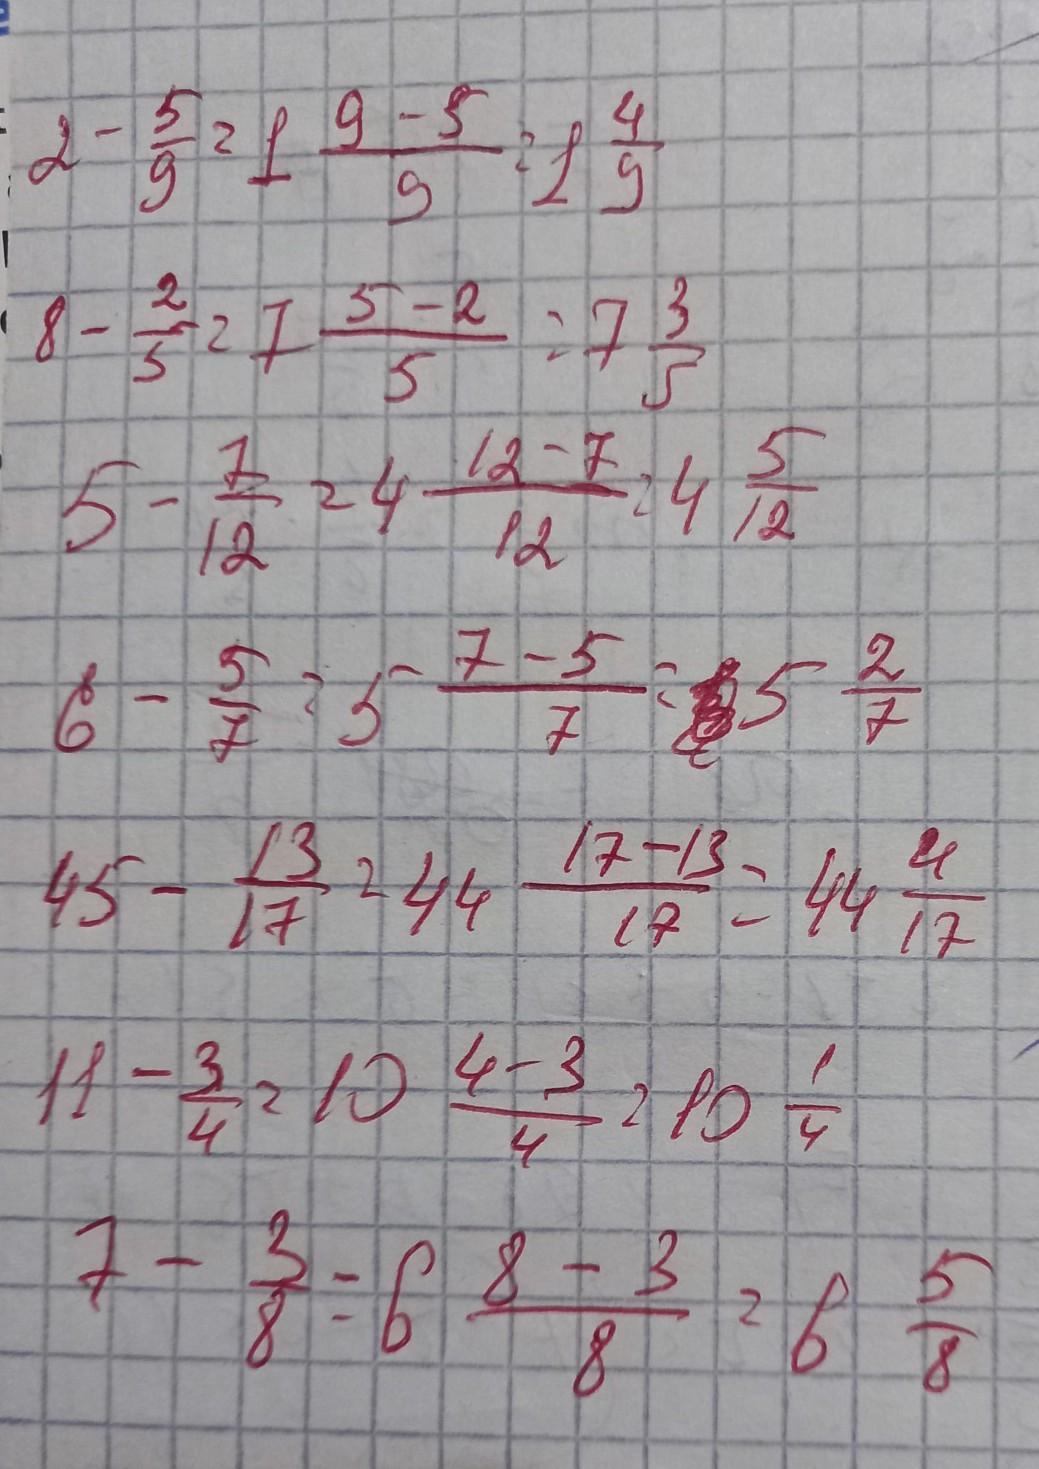 2 - 5/9 = 1 (9-5)/9 = 1 4/9
8 - 2/5 = 7 (5-2)/5 = 7 3/5
5 - 7/12 = 4 (12-7)/12 = 4 5/12
6 - 5/7 = 5 (7-5)/7 = 5 2/7
45 - 13/17 = 44 (17-13)/17 = 44 4/17
11 - 3/4 = 10 (4-3)/4 = 10 1/4
7 - 3/8 = 6 (8-3)/8 = 6 5/8